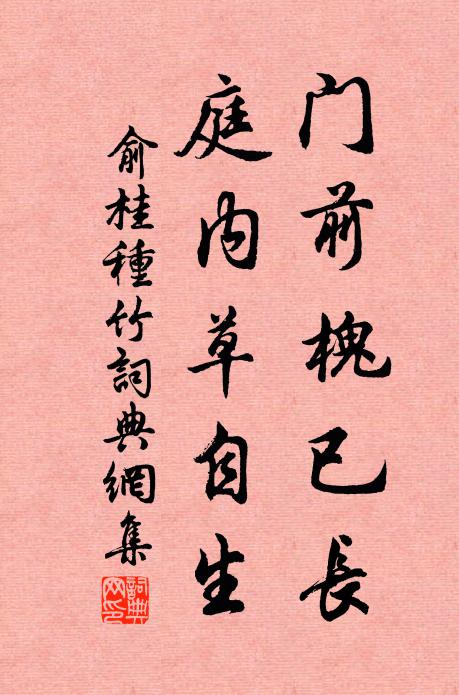 门前槐已长
庭内草自生
俞桂種竹詞典網集
詞典
网印